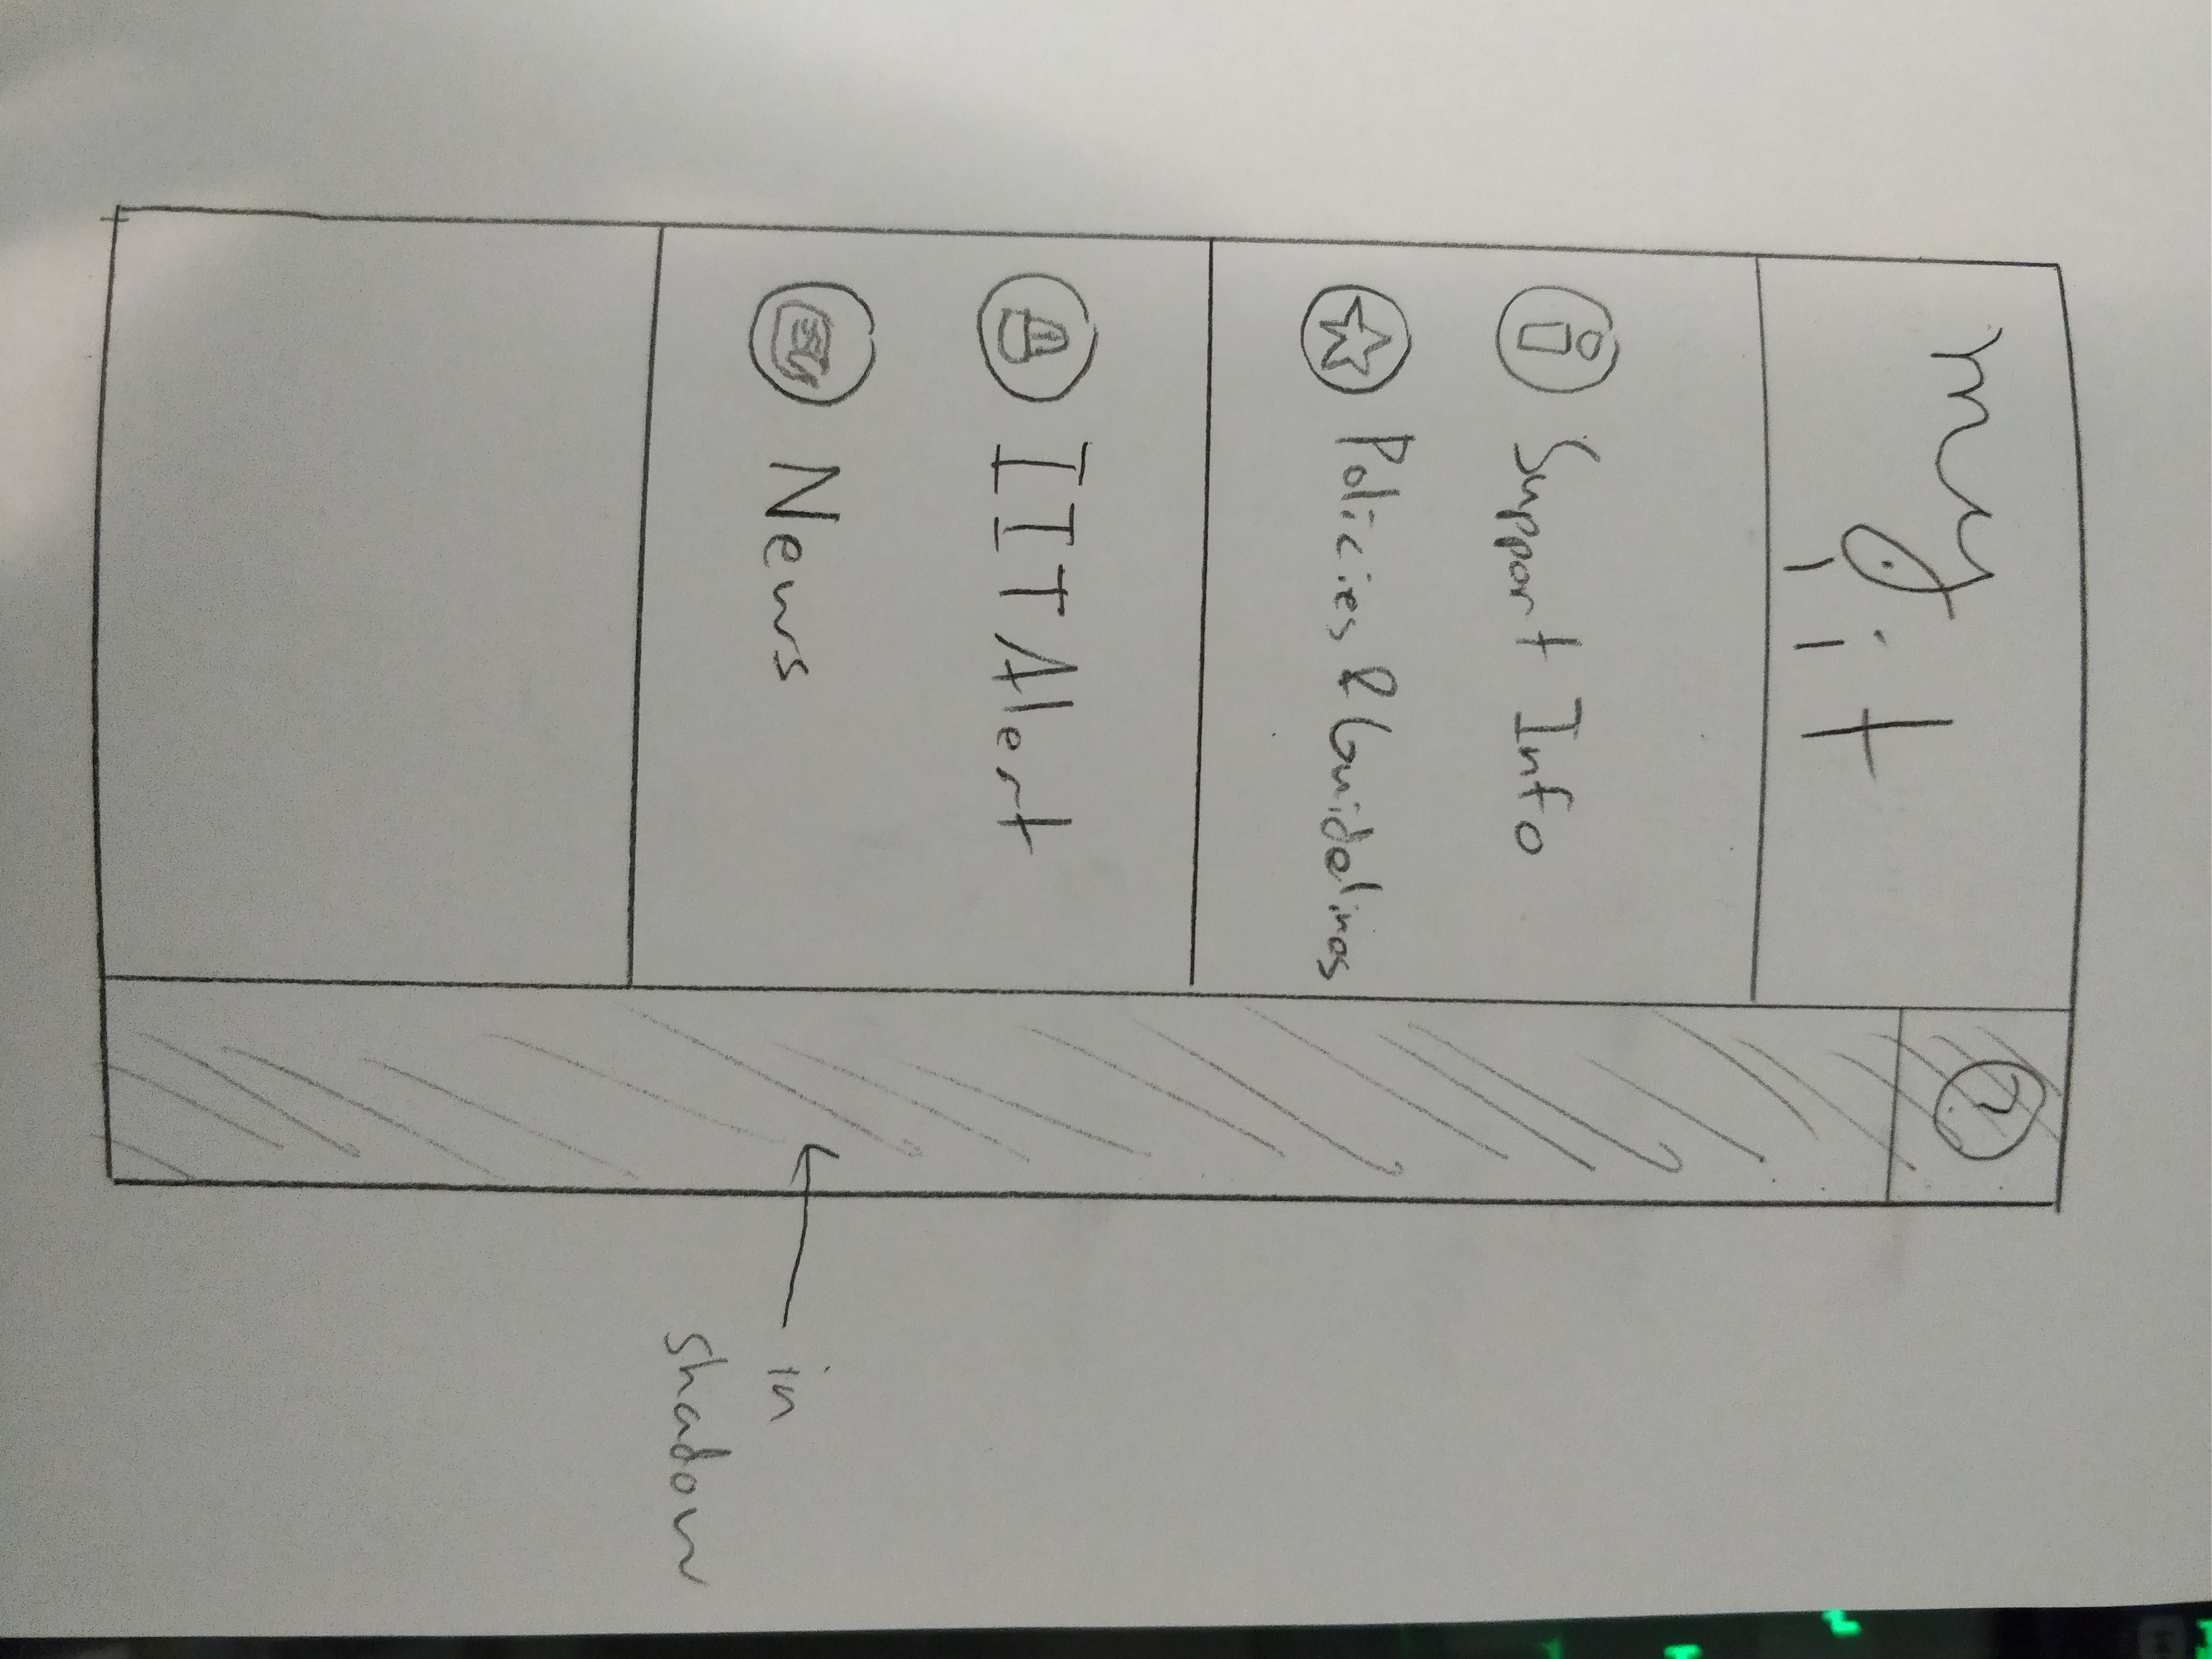 my
iit
?
i Support Info
Policies & Guidelines
IIT Alert
News
in
shadow